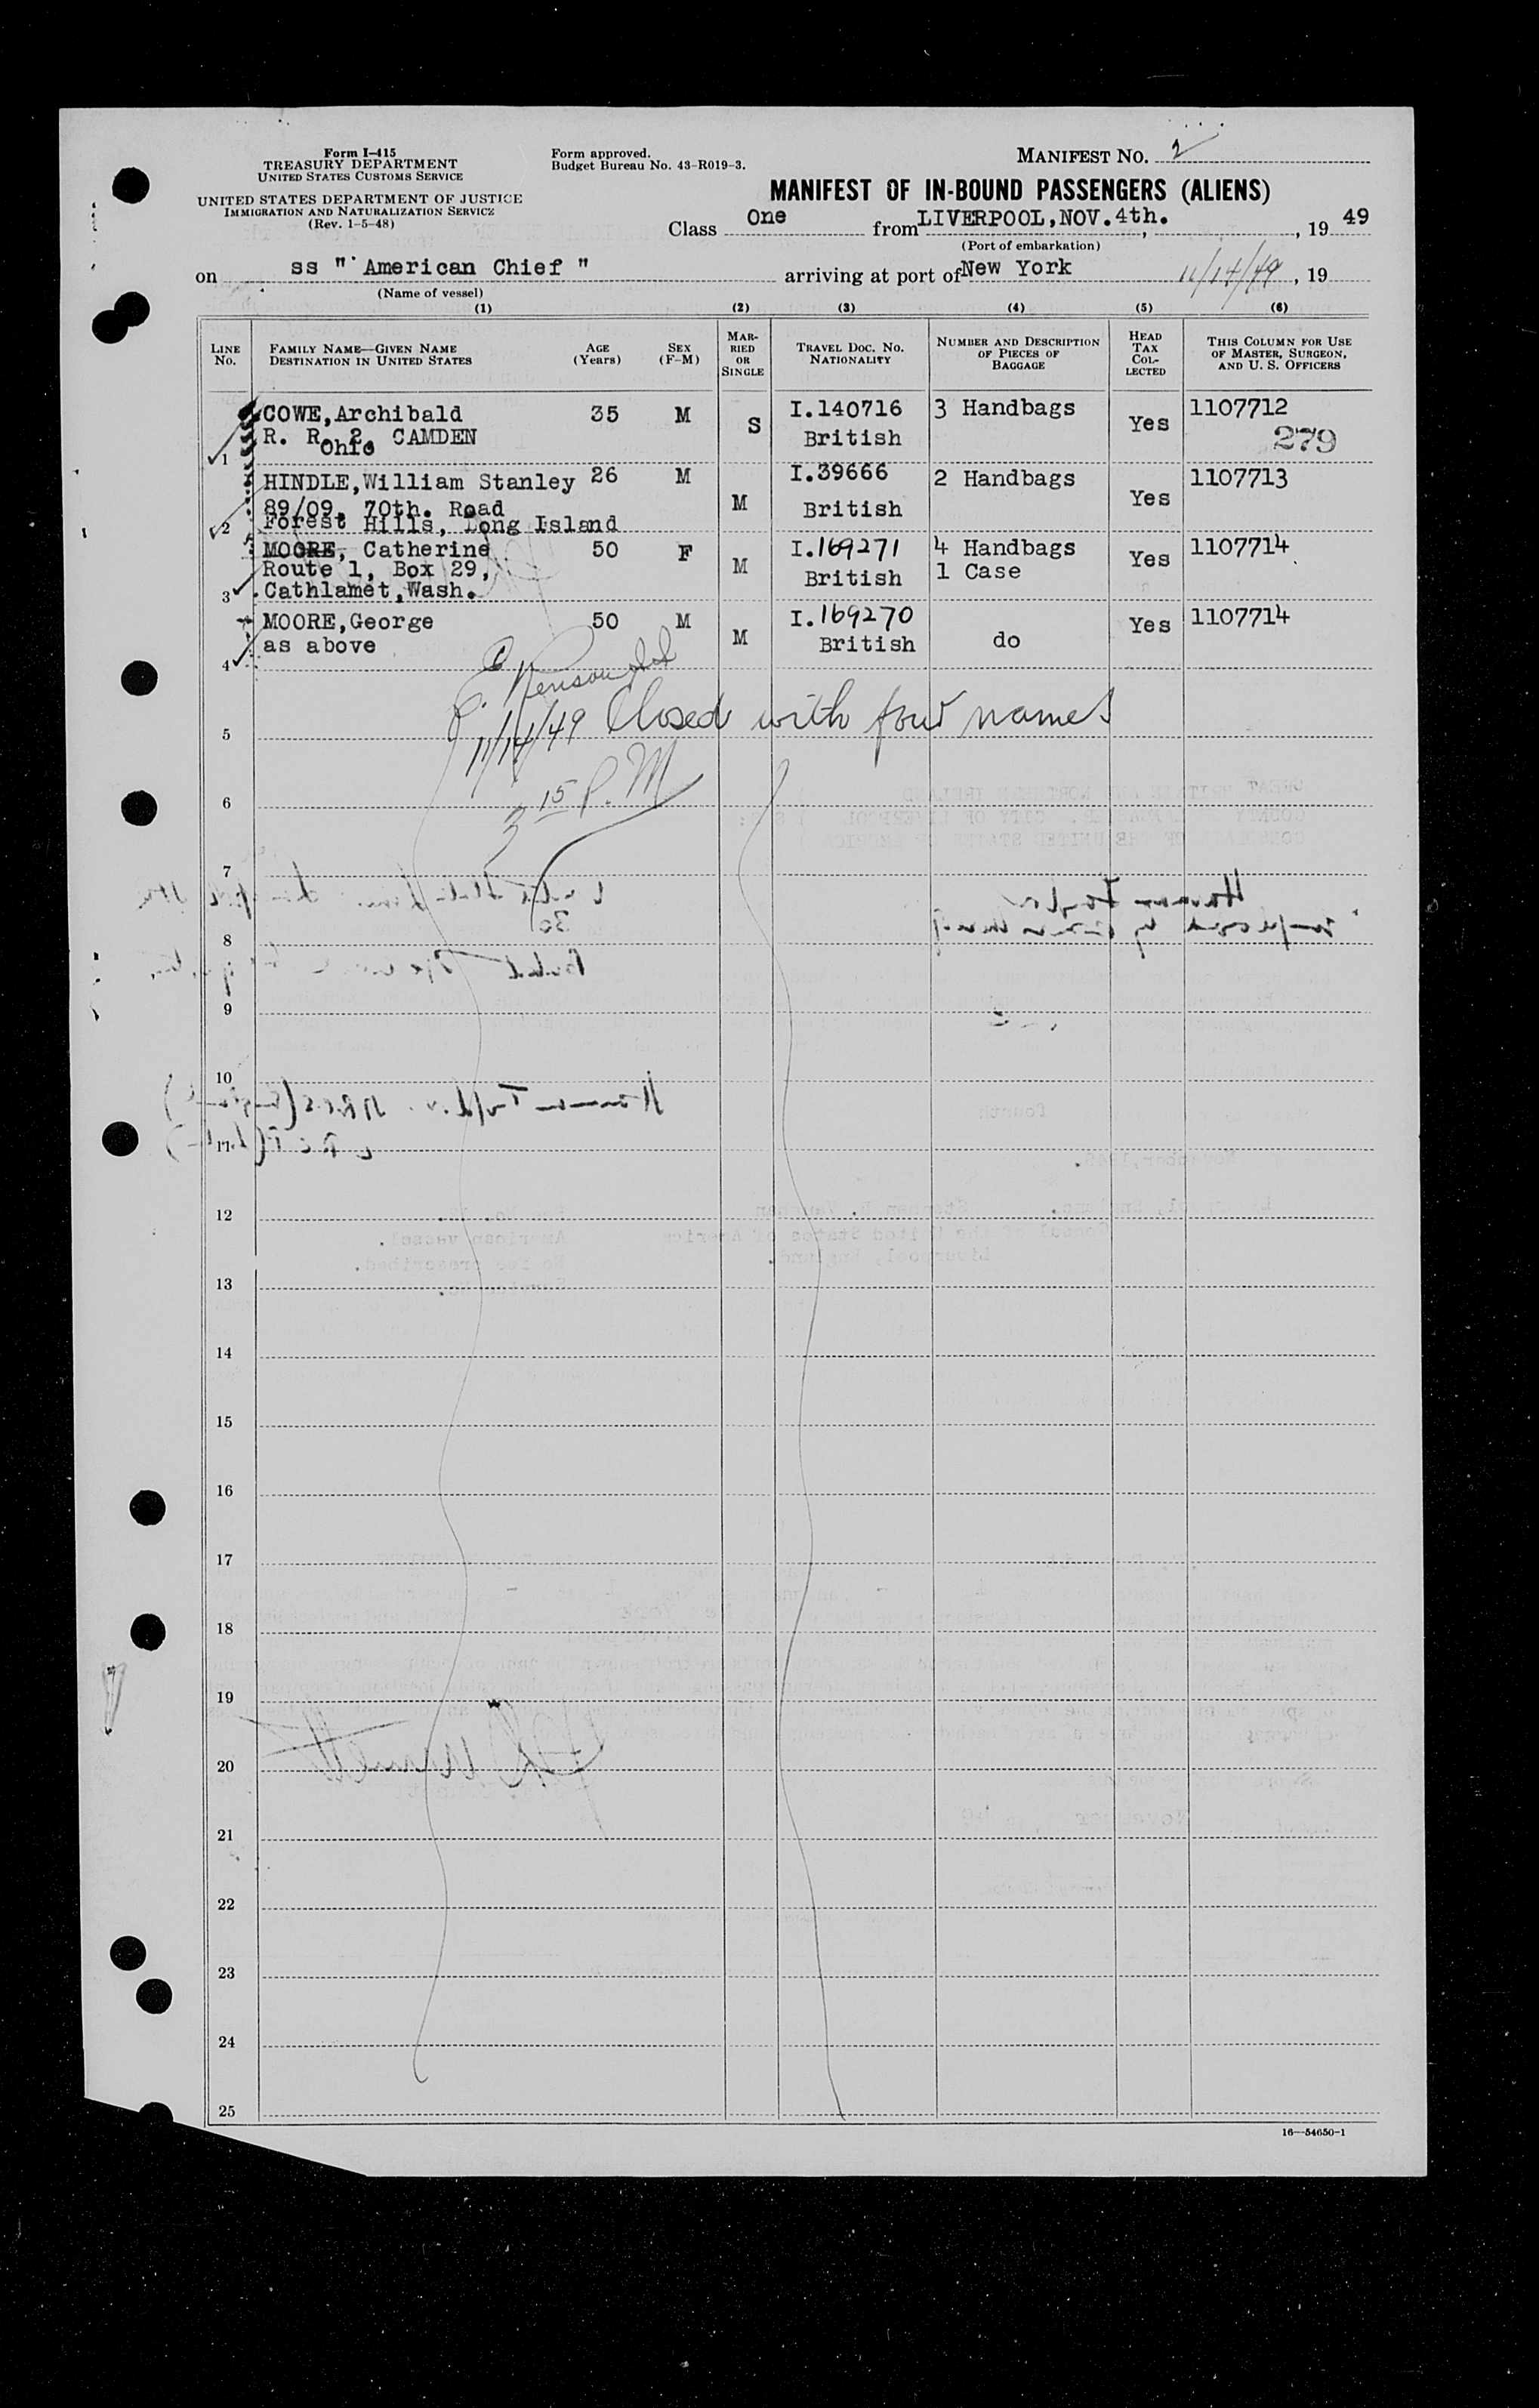 Form I-415
TREASURY DEPARTMENT
UNITED STATES CUSTOMS SERVICE
UNITED STATES DEPARTMENT OF JUSTICE
IMMIGRATION AND NATURALIZATION SERVICE
(Rev. 1-5-48)
Form approved.
Budget Bureau No. 43-R019-3.
MANIFEST NO. 2
MANIFEST OF IN-BOUND PASSENGERS (ALIENS)
Class One from LIVERPOOL, NOV. 4th. , 19 49
(Port of embarkation)
on ss " American Chief " arriving at port of New York 11/14/49, 19
(Name of vessel)
(1) (2) (3) (4) (5) (6)
LINE No. FAMILY NAME—GIVEN NAME DESTINATION IN UNITED STATES AGE (Years) SEX (F-M) MARRIED OR SINGLE TRAVEL DOC. NO. NATIONALITY NUMBER AND DESCRIPTION OF PIECES OF BAGGAGE HEAD TAX COLLECTED THIS COLUMN FOR USE OF MASTER, SURGEON, AND U. S. OFFICERS
COWE,Archibald 35 M S I.140716 3 Handbags Yes 1107712
R. R. 2. CAMDEN British 279
1 Ohio
HINDLE,William Stanley 26 M M I.39666 2 Handbags Yes 1107713
89/09, 70th. Road British
2 Forest Hills, Long Island
MOORE, Catherine 50 F M I.169271 4 Handbags Yes 1107714
Route 1, Box 29, British 1 Case
3 Cathlamet,Wash.
MOORE,George 50 M M I.169270 Yes 1107714
as above British do
4
11/14/49 Closed with four names
5
3 15 P.M
6
7
8
9
10
11
12
13
14
15
16
17
18
19
20
21
22
23
24
25
16—54650-1